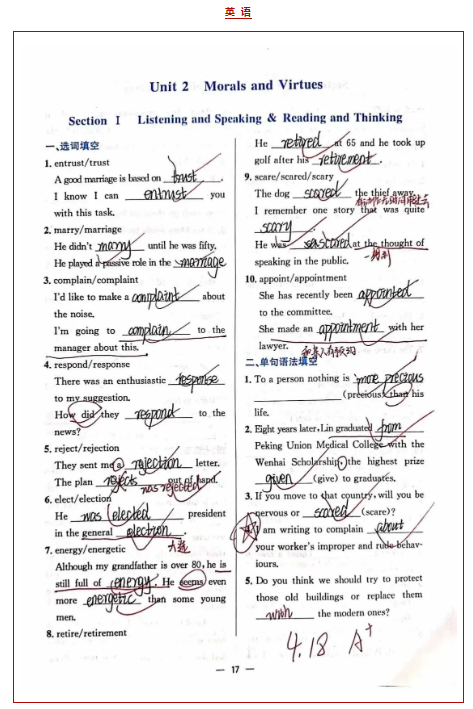 英 语
Unit 2 Morals and Virtues
Section I Listening and Speaking & Reading and Thinking
一、选词填空
1. entrust/trust
A good marriage is based on trust.
I know I can entrust you
with this task.
2. marry/marriage
He didn't marry until he was fifty.
He played a passive role in the marriage
3. complain/complaint
I'd like to make a complaint about
the noise.
I'm going to complain to the
manager about this.
4. respond/response
There was an enthusiastic response
to my suggestion.
How did they respond to the
news?
5. reject/rejection
They sent me a rejection letter.
The plan rejects out of hand.
was rejected
6. elect/election
He was elected president
in the general election.
大选
7. energy/energetic
Although my grandfather is over 80, he is
still full of energy. He seems even
more energetic than some young
men.
8. retire/retirement
He retired at 65 and he took up
golf after his retirement.
9. scare/scared/scary
The dog scared the thief away.
I remember one story that was quite
scary.
He was scared at the thought of
speaking in the public.
一想到
10. appoint/appointment
She has recently been appointed
to the committee.
She made an appointment with her
lawyer.
二、单句语法填空
1. To a person nothing is more precious
(precious) than his
life.
2. Eight years later, Lin graduated from
Peking Union Medical College with the
Wenhai Scholarship, the highest prize
given (give) to graduates.
3. If you move to that country, will you be
nervous or scared (scare)?
I am writing to complain about
your worker's improper and rude behav-
iours.
5. Do you think we should try to protect
those old buildings or replace them
with the modern ones?
4.18 A+
— 17 —